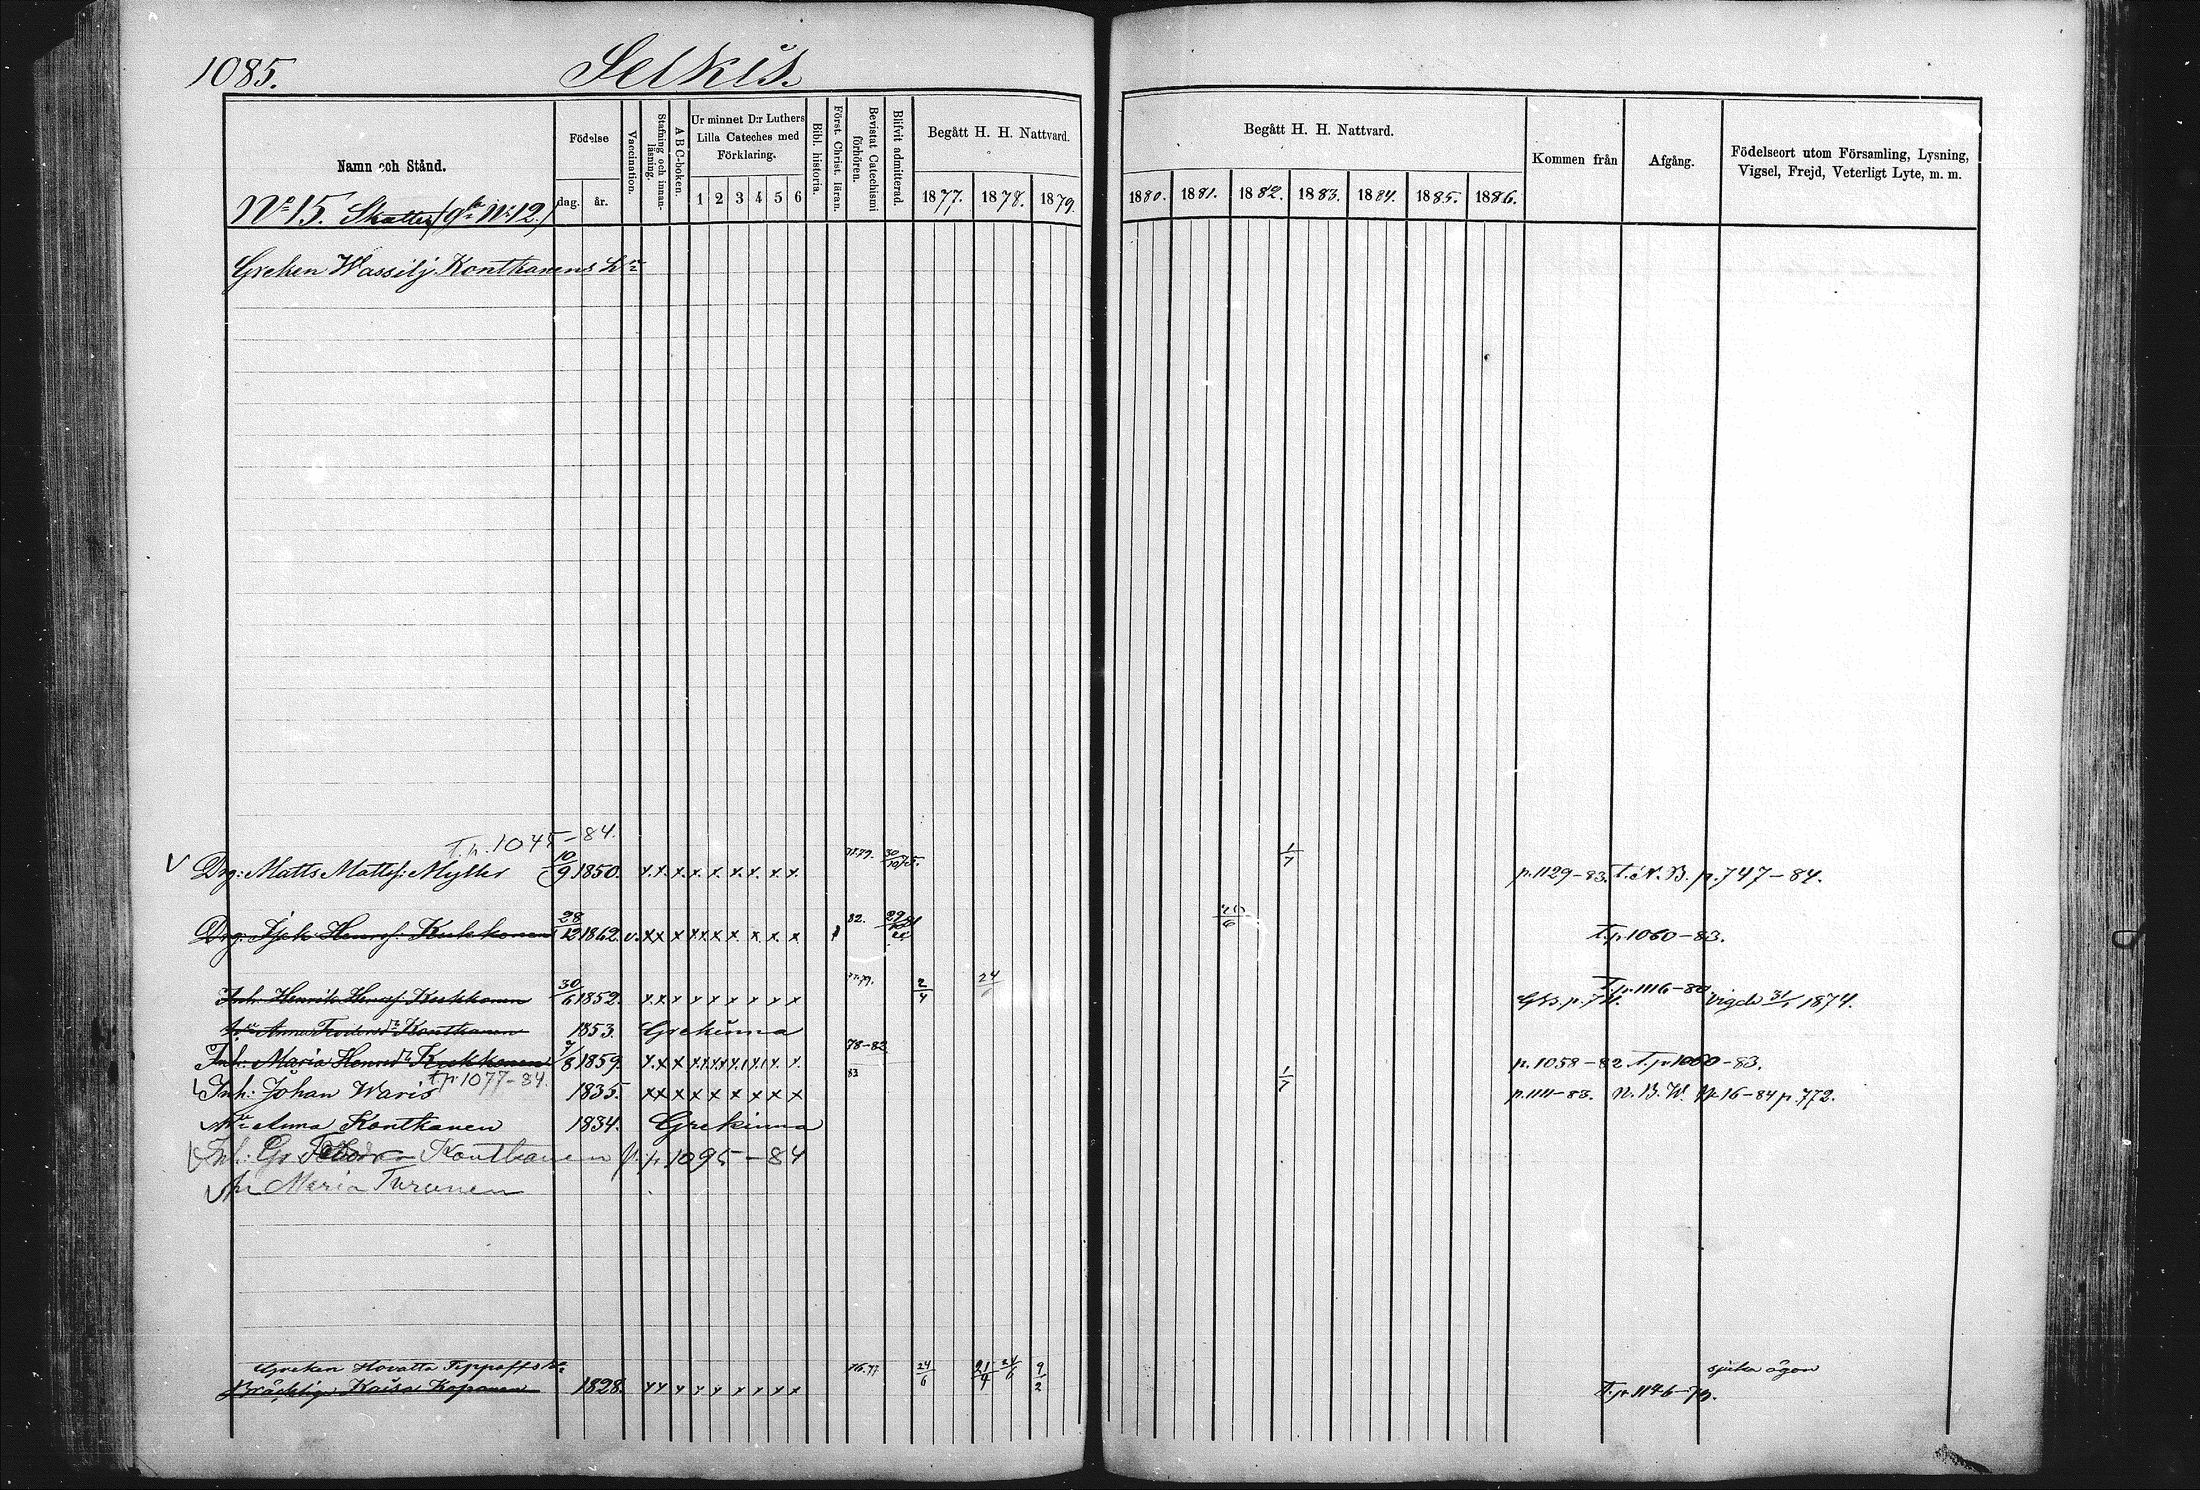 1085. Selkis.
Namn och Stånd. Födelse dag. år. Vaccination. Stafning och innanläsning. ABC-boken. Ur minnet D:r Luthers Lilla Cateches med Förklaring. 1 2 3 4 5 6 Bibl. historia. Först. Christ. läran. Bevistat Catechismi förhören. Blifvit admitterad. Begått H. H. Nattvard. 1877. 1878. 1879.
Begått H. H. Nattvard. 1880. 1881. 1882. 1883. 1884. 1885. 1886. Kommen från Afgång. Födelseort utom Församling, Lysning, Vigsel, Frejd, Veterligt Lyte, m. m.
No 15. Skatte, (gla No 12.)
Greken Wassilj Kontkanens
T. p. 1045-84.
Drg: Matts Mattss: Myller 10/9 1850. x. x. x. x. x x. x. x x 78.79. 30/10 75. 1/7 p. 1129-83. T. N. B. p. 747-84.
Drg: Isak Henrss: Kukkonen 28/12 1862. v. x x x x x x x. x. x. x 82. 20/6 T. p. 1060-83.
Inh: Henrik Henrss: Kukkonen 30/6 1852. x x x x x x x x x 77.79. 2/4 24/6 T. p. 1116-80. vigde 31/1 1874.
Anna Kontkanen 1853. Grekinna
Inh: Maria Henrsdr Kukkonen 7/8 1859. x. x x x x x x x x. 78-82 p. 1058-82 T. p. 1060-83.
t. p. 1077-84.
Inh: Johan Waris 1835. x x x x x x x x x 83 1/7 p. 1111-83. N. B. W. No 16-84 p. 772.
Anna Kontkanen 1834. Grekinna
Inh: Gr Feodor Kontkanen p. 1095-84
Maria Turunen
Greken Hovatta Tippoffs
Bräcklig Kaisa Kaponen 1828. x x x x x x x x x 76.77 24/6 21/4 24/6 9/2 T. p. 1146-79. sjuka ögon